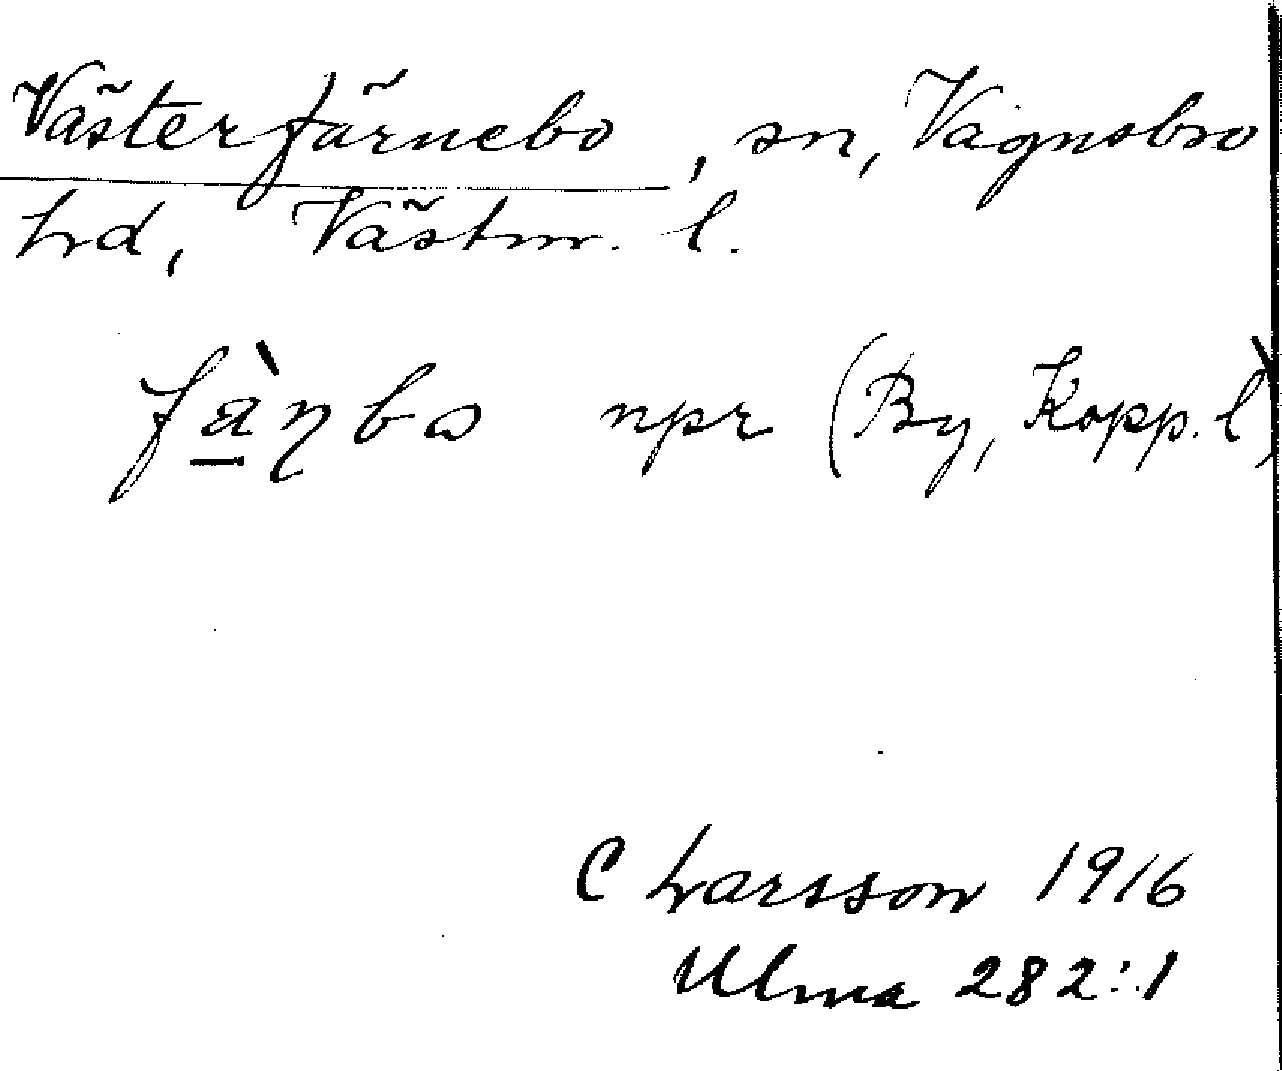 Västerfärnebo, sn, Vagnsbro
hd, Västm. l.
fà̱ŋbo npr (By, Kopp.l)
C Larsson 1916
Ulma 282:1